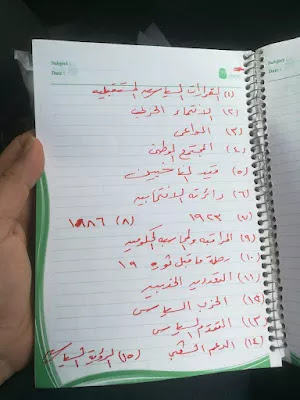 Subject :
Date :
(١) القرارات السياسية المستقبلية
(٢) الانتماء الحزبي
(٣) المواعي
(٤) المجتمع الوطن
(٥) قيد الناخبين
(٦) دائرته الانتخابيه
(٧) ١٩٢٣ (٨) ١٩٨٦
(٩) المراقبه والمحاسبه الحكوميه
(١٠) رحلة ما قبل ثوره ١٩
(١١) التعدديه الحزبيه
(١٢) الحزب السياسي
(١٣) التقدم السياسي
(١٤) الدعم الشعبي (١٥) الرؤية السياسيه
Subject :
Date :